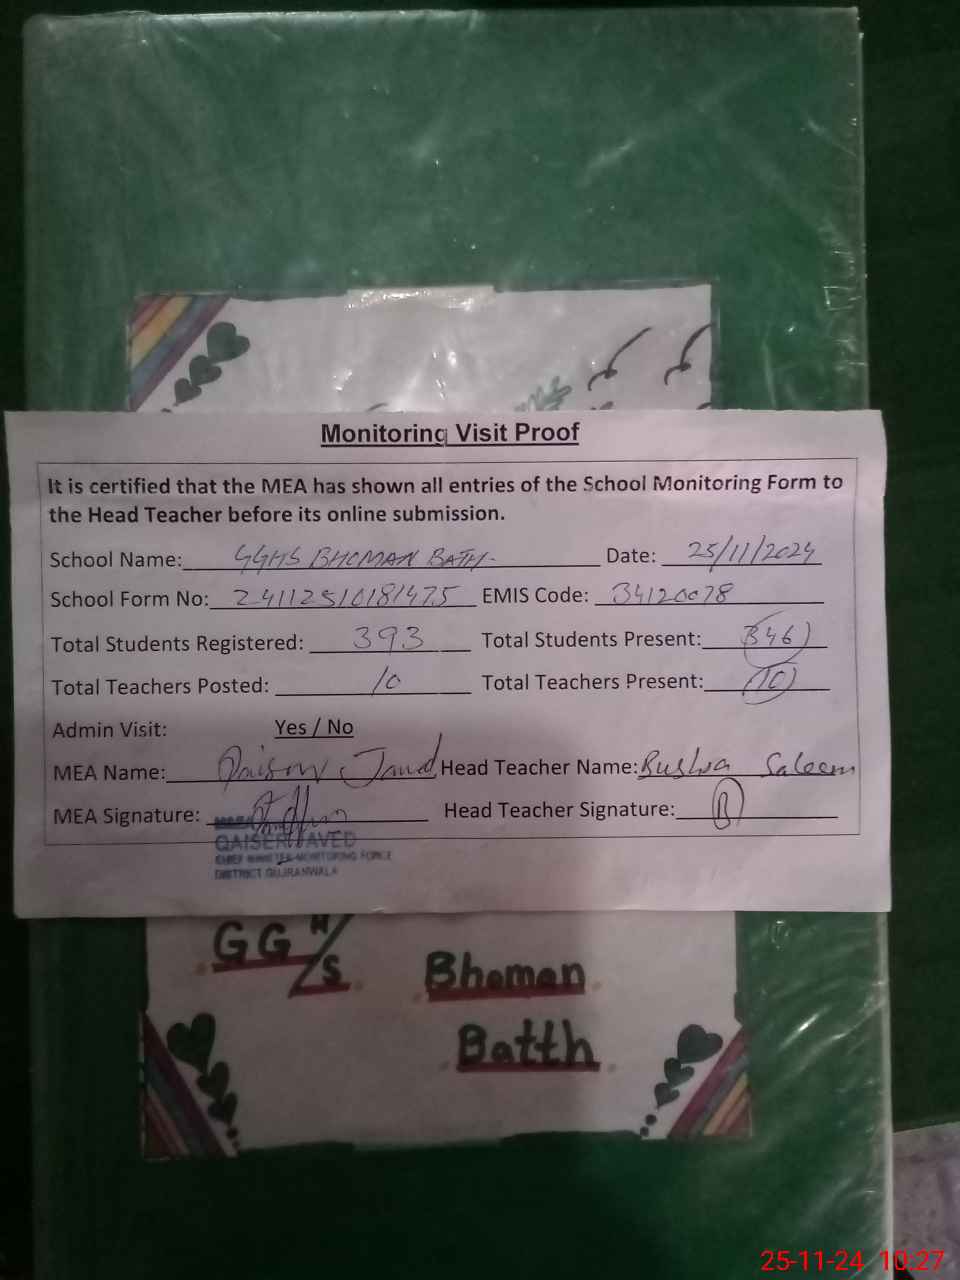 Monitoring Visit Proof
It is certified that the MEA has shown all entries of the School Monitoring Form to
the Head Teacher before its online submission.
School Name: GGHS BHOMAN BATH- Date: 25/11/2024
School Form No: 24112510181475 EMIS Code: 34120078
Total Students Registered: 393 Total Students Present: 346
Total Teachers Posted: 10 Total Teachers Present: 10
Admin Visit: Yes / No
MEA Name: Qaiser Javed Head Teacher Name: Bushra Saleem
MEA Signature: Head Teacher Signature:
QAISER JAVED
CHIEF MINISTER MONITORING FORCE
DISTRICT GUJRANWALA
GGH/S Bhoman
Batth
25-11-24 10:27